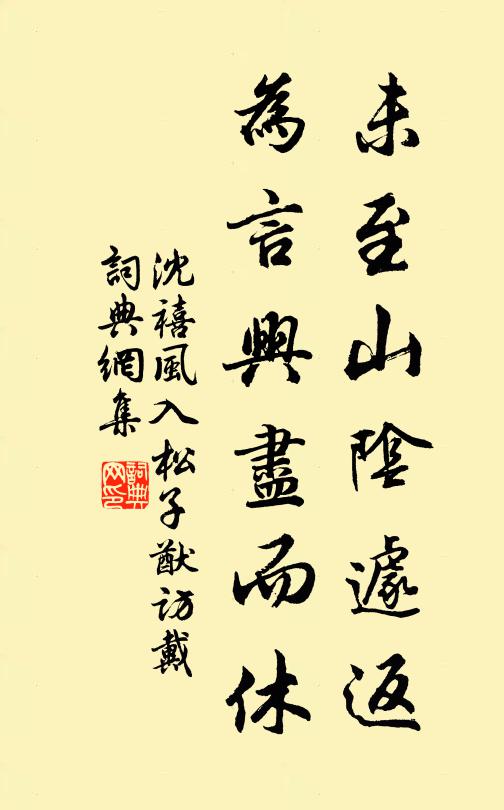 未至山陰遽返
為言興盡而休
沈禧風入松子猷訪戴
詞典網集
詞典網印